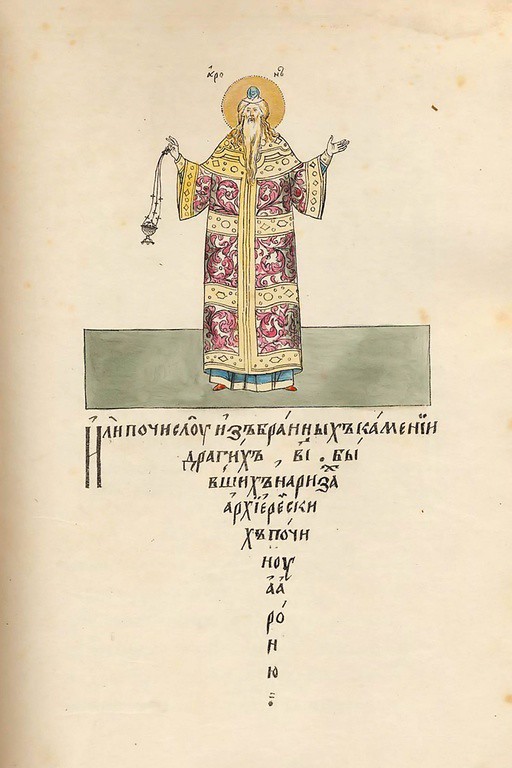 а҆ро нъ
И҆лѝпочислꙋ̀ и҆збра́нныхъкаме́нїи
драги́хъ , в҃і . бы́
вшихънариза́
а҆рхїере́ски
хъпочи́
ноу
а҆а
ро́
н
ю